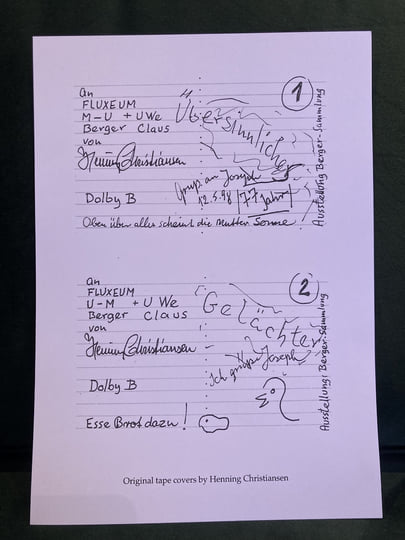 An
FLUXEUM
M-U + UWe
Berger Claus
von
Henning Christiansen
Dolby B
Übersinnlicher
Grup an Joseph
12.5.98 77 Jahre
Oben über alles scheint die Mutter Sonne!
1
Ausstellung Berger-Sammlung
An
FLUXEUM
U-M + U We
Berger Claus
von
Henning Christiansen –
Dolby B
Gelächter
Ich grüße Joseph
Esse Brot dazu!
2
Ausstellung: Berger-Sammlung
Original tape covers by Henning Christiansen